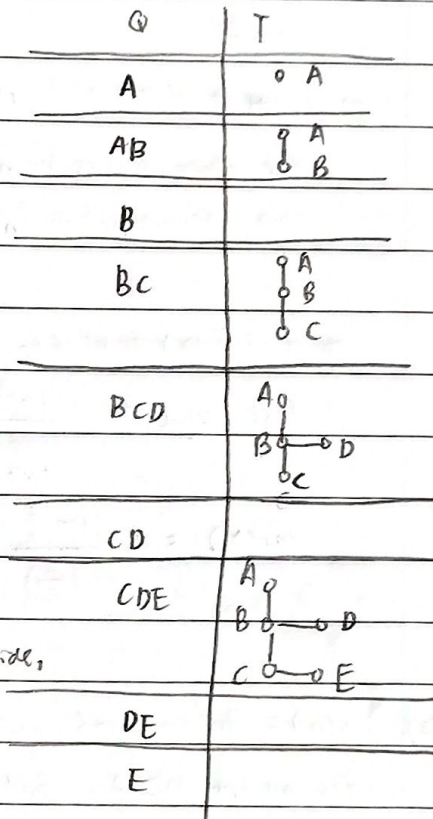 Q T
A A
AB A
B
B
BC A
B
C
BCD A
B D
C
CD
CDE A
B D
C E
DE
E